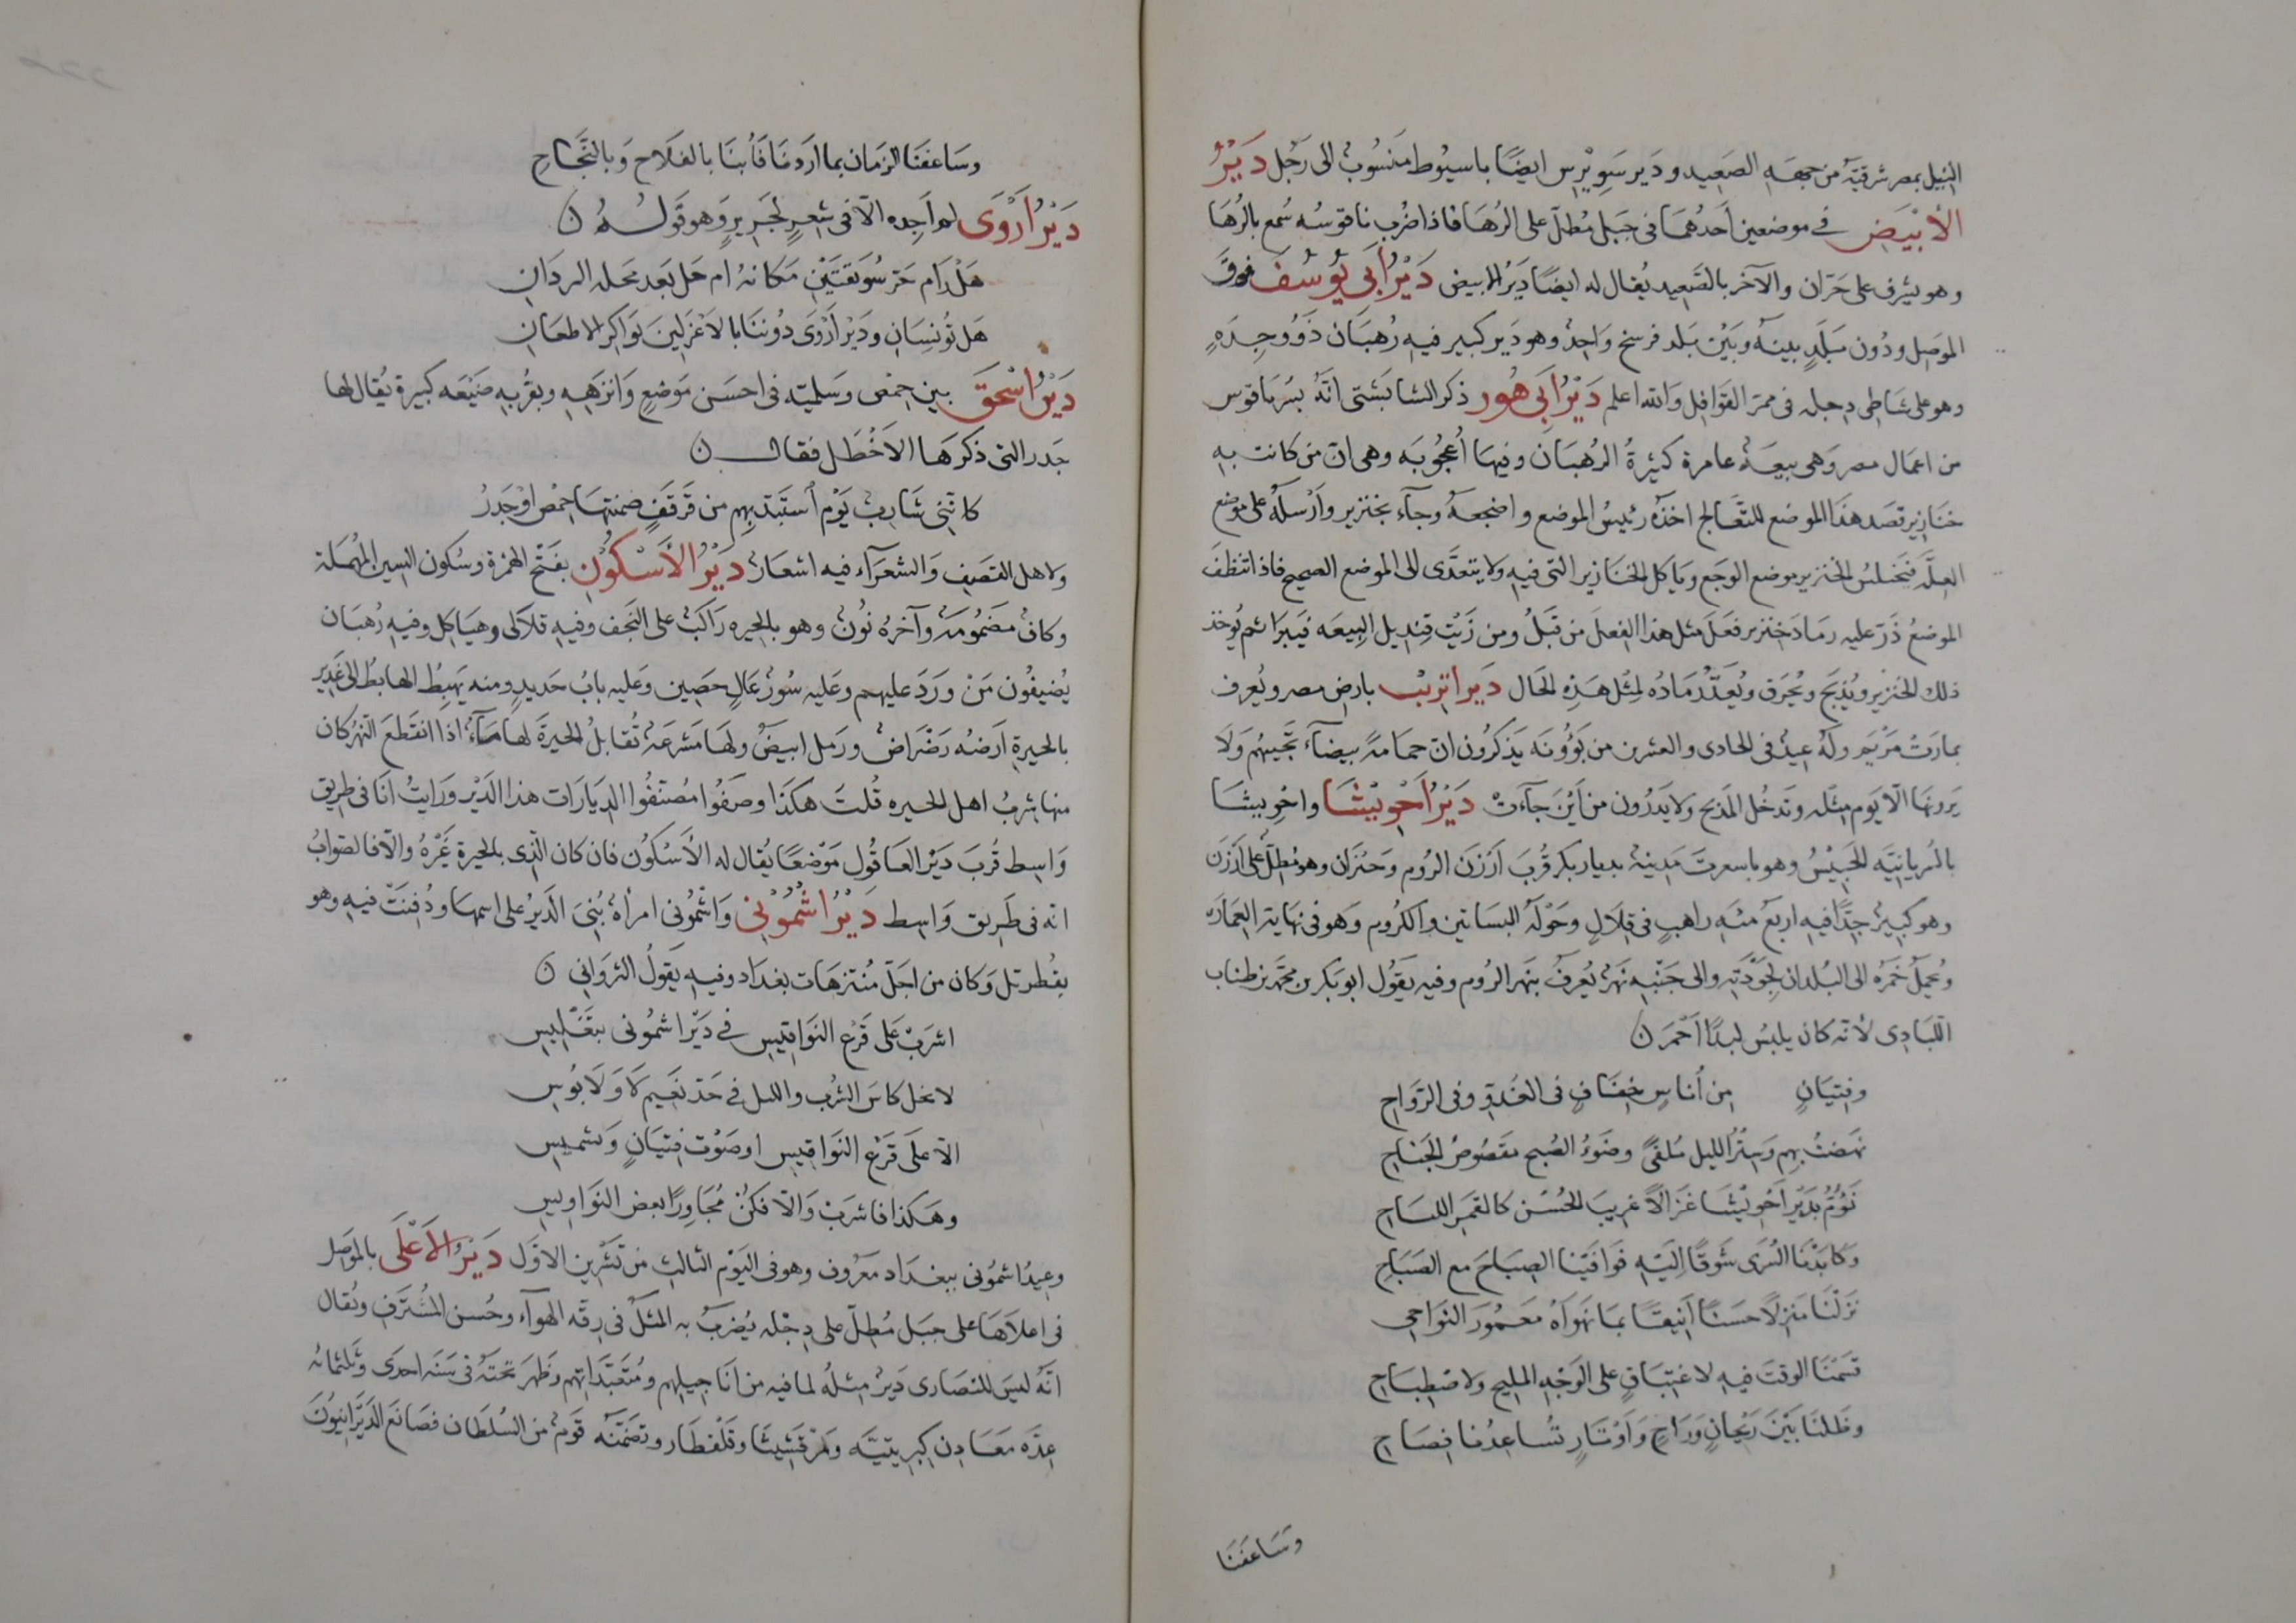 النيل بمصر شرقيّه من جهه الصَعِيد ودَير سَوِيْرِس ايضًا باسيُوط منسُوبٌ الى رَجُل دَيْرُ
الأبْيَضِ في موضعين اَحدُهُمَا فى جَبل مُطلّ على الرُهَا فاذا ضُرِب ناقوسُه سُمع بالرُهَا
وهو يشرف على حَرّان والآخر بالصَّعِيد يُقال له ايضًا دَيرُ الابيض دَيْرُ اَبى يُوسُفَ فوقَ
الموَصِل ودُون بَلَدٍ بينهُ وبَيْن بَلد فرسخ وَاحِدٌ وهو دَير كبير فيهِ رُهبَان ذَوُوجِدَهٍ
وهو على شَاطِى دِجله فى ممرّ القوَافِل وَالله اعلم دَيْرُ اَبِى هُور ذكر الشابَشتى انّهُ بسُرياقوس
من اعمَال مصر وَهى بيعَهٌ عامرة كثيرةُ الرُهبَان وفيهَا اُعجُوبَه وهى انّ من كانت بهِ
خنَازِير قصَد هذَا الموضع للتعَالج اخذهُ رئيسُ الموضع واضجعهُ وجآء بخنزير وأرْسَلهُ على موضع
العِلّه فيَختلسُ الخنزير موضع الوجَع ويَاكل الخنَازير التى فيهِ ولا يتعَدَّى الى الموضع الصحيح فاذا تنظفَ
الموضعُ ذَرّ عليه رمَادَ خنزير فعَلَ مثل هذا الفِعلَ من قبَلُ ومن زَيْت قِنديل البِيعَه فيَبرَا ثم يُوخذ
ذلك الخنزير ويُذبَح ويُحرَق ويُعَدُّ رَمَادُه لمثِل هَذِهِ الحَال دَير اتريْب بارض مصر ويُعرف
بمارَتْ مَرْيَم ولَهُ عيدٌ فى الحادى والعشرين من بَؤُونَه يَذكرُون انّ حمامةً بيضآء تجَيئهُم وَلَا
يَرونهَا الّا يَوم مثله وتَدخُل المذبح ولا يَدرُون من أَيْنَ جآءَتْ دَيْرُ اَحْوِيْشَا واحْوِيشَا
بالسُريانيّه الحَبِيْسُ وهو باسعِرتَ مَدِينةٌ بديار بكر قُربَ اَرْزَن الرُوم وحَنزَان وهو مُطِلٌّ على اَرْزَن
وهو كبيرٌ جِدًا فيهِ اربَعُ مئَه رَاهبٍ فى قِلَالٍ وحَوْلَهُ البَسَاتين والكرُوم وَهو فى نهَاية العِمَارَة
ويُحمَلُ خَمرُه الى البُلدان لجَوْدَتِه والى جَنْبِه نَهرٌ يُعرَفُ بنَهر الرُوم وفيه يَقُول ابوبَكر بن محمّد بن طناب
اللبَّادِى لأنه كان يلبَسُ لبدًا أحْمَر
وفِتيَانٍ من اُناسٍ خِفَافٍ فى الغُدوّ وفى الرّوَاحِ
نهَضتُ بهِم وَسِتْرُ الليل مُلقىً وضَوْءُ الصُبح مقصُوصُ الجَنَاحِ
نَؤُمُّ بدَيْرِ اَحْوِيْشَا غَزَالًا غرِيبَ الحُسْن كالقمَر اللياحِ
وكَابَدْنَا السُّرَى شَوقًا اِليَهِ فوَافَيْنا الصِبَاحَ مع الصَبَاحِ
نَزلْنَا مَنزلًا حسَنًا اَنِيقًا بمَا نهَوَاهُ مَعمُورَ النوَاحِى
قسَمْنَا الوقتَ فيهِ لاغتِبَاقٍ على الوَجْهِ المليح ولاصْطِبَاحِ
وظَلنَا بَيْنَ رَيْحَانٍ وَرَاحٍ وَاَوْتارٍ تُسَاعِدُنا فِصَاحِ
وَسَاعَفَنَا
وسَاعفَنَا الزمَان بما اردنَا فَأُبنَا بالفَلَاح وَبالنَّجَاحِ
دَيْرُ أَرْوَى لم اَجِده الّا فى شِعرٍ لجَرِيرٍ وَهو قولُهُ
هَلْ رَام جَوّ سُوَيقتَيْنِ مَكانهُ ام حَل بَعد محَله البردَانِ
هَل تُونسَانِ ودَيْر اَرْوَى دُوننَا بالاَعْزَلِينَ بَوَاكِر الاظعَانِ
دَيْرُ اسْحَقَ بين حِمْص وسَلمِيّه فى احسَن مَوْضِعٍ وَانزَهِهِ وبقُربِهِ ضَيْعَه كبيرة يُقال لها
جَدَر التى ذكرَهَا الاَخْطَل فقال
كانّنى شَارِبٌ يَوْم اُستُبِدّ بِهِم من قَرقَفٍ ضمنتهَا حِمصُ اوْجَدَرُ
ولاهل القصَيف وَالشعَرَآء فيه اشعَارٌ دَيْرُ الأَسْكُوْن بفَتْح الهمزة وسُكون السين المُهمَلة
وكافٌ مضمُومَةٌ وآخرهُ نُونٌ وهو بالحِيره رَاكبٌ على النَجف وفيهِ قلَالى وهيَاكل وفيهِ رُهبَان
يُضيفُون مَنْ وَرَدَ عليهم وعَليه سُورٌ عَالٍ حصَين وعَليه بابُ حَديد ومنه يَهبِطُ الهَابط الى غَدِير
بالحيرةِ اَرضُه رَضْرَاضٌ ورَمل ابيضُ ولهَا مَشرعَةٌ تُقابلُ الحيرةَ لها مَآءٌ اذا انقَطَعَ النَهرُ كان
منها شربُ اهل الحيره قُلتُ هكذَا وصَفُوا مُصَنّفُوا الديَارَات هذا الدَيْر ورَايتُ اَنا فى طريق
وَاسِط قُربَ دَيْر العَاقُول مَوْضعًا يُقال له الأَسْكُون فان كان الّذى بالحيرة غَيْرُهُ والّا فالصَوابُ
انّه فى طَرِيق وَاسِط دَيْرُ اشْمُوْنى وَاشْمُونى امرأةٌ بُنىَ الدَيرُ على اسمهَا ودُفنَتْ فيهِ وهو
بقُطرَبّل وَكان من اجَلّ مُنتزهَات بغدَاد وفيه يَقولُ الثروَانى
اشرَبْ عَلى قَرع النَوَاقيسِ في دَيْر اشمُونى بتَغْلِيسِ
لا تخل كاسَ الشُرب والليل في حَدّ نَعِيم لَا وَلَا بُوسِ
الّا علَى قَرْع النَوَاقيسِ او صَوْت فِتيَانٍ وَتشميسِ
وهَكذَا فاشرَبْ وَالّا فكَنْ مُجَاورًا بعض النَوَاويسِ
وعيدُ اشمُونى ببغدَاد معَرُوف وهو فى اليَوْم الثالث من تَشْرِين الاوّل دَيْرُ الأعْلَى بالموَصِل
فى اعلَاهَا على جبَل مُطِلّ على دِجْله يُضرَبُ به المثَلُ فى رِقّه الهوَآء وحُسن المُشتَرَف ويُقال
انّهُ ليسَ للنصَارى دَيرٌ مِثلهُ لما فيه من انَاجِيلِهم ومُتعَبّدَاتِهم وظَهرَ تحتَهُ فى سَنَه احدَى وثلثمائه
عِدّه مَعَادِن كبرِيتيّه ومَرْقشيثا وقَلقطَار وتضَمّنَه قومٌ من السُلطَان فصَانَع الدّيرَانيُونَ